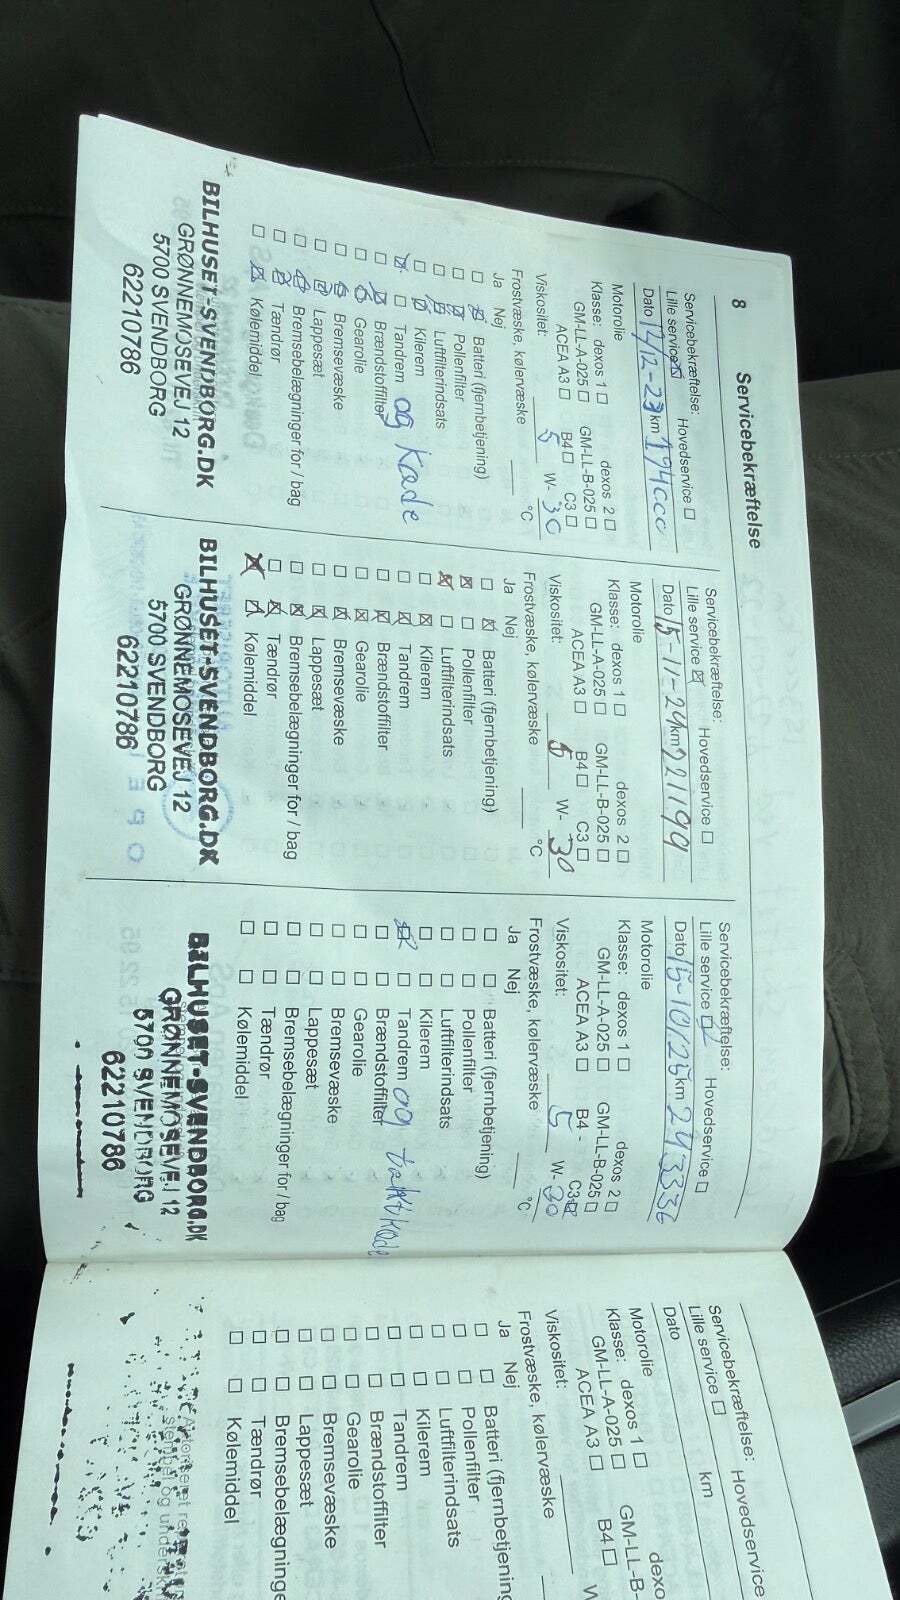 8
Servicebekræftelse
Servicebekræftelse:
Lille service ☒ Hovedservice ☐
Dato 14/12-23 km 194000
Motorolie
Klasse: dexos 1 ☐ dexos 2 ☐
GM-LL-A-025 ☐ GM-LL-B-025 ☐
ACEA A3 ☐ B4 ☐ C3 ☐
Viskositet: 5 W- 30
Frostvæske, kølervæske °C
Ja Nej
☐ ☒ Batteri (fjernbetjening)
☐ ☒ Pollenfilter
☐ ☒ Luftfilterindsats
☐ ☒ Kilerem
☒ ☐ Tandrem og Kæde
☐ ☒ Brændstoffilter
☐ ☒ Gearolie
☐ ☒ Bremsevæske
☐ ☒ Lappesæt
☐ ☒ Bremsebelægninger for / bag
☐ ☒ Tændrør
☐ ☒ Kølemiddel
BILHUSET-SVENDBORG.DK
GRØNNEMOSEVEJ 12
5700 SVENDBORG
62210786
Servicebekræftelse:
Lille service ☒ Hovedservice ☐
Dato 15-11-24 km 221199
Motorolie
Klasse: dexos 1 ☐ dexos 2 ☐
GM-LL-A-025 ☐ GM-LL-B-025 ☐
ACEA A3 ☐ B4 ☐ C3 ☐
Viskositet: 5 W- 30
Frostvæske, kølervæske °C
Ja Nej
☐ ☒ Batteri (fjernbetjening)
☒ ☐ Pollenfilter
☒ ☐ Luftfilterindsats
☐ ☒ Kilerem
☐ ☒ Tandrem
☐ ☒ Brændstoffilter
☐ ☒ Gearolie
☐ ☒ Bremsevæske
☐ ☒ Lappesæt
☐ ☒ Bremsebelægninger for / bag
☐ ☒ Tændrør
☒ ☒ Kølemiddel
BILHUSET-SVENDBORG.DK
GRØNNEMOSEVEJ 12
5700 SVENDBORG
62210786
Servicebekræftelse:
Lille service ☒ Hovedservice ☐
Dato 15-10/25 km 243336
Motorolie
Klasse: dexos 1 ☐ dexos 2 ☐
GM-LL-A-025 ☐ GM-LL-B-025 ☐
ACEA A3 ☐ B4 - C3 ☒
Viskositet: 5 W- 30
Frostvæske, kølervæske °C
Ja Nej
☐ ☐ Batteri (fjernbetjening)
☐ ☐ Pollenfilter
☐ ☐ Luftfilterindsats
☐ ☐ Kilerem
☒ ☐ Tandrem og taktkæde
☐ ☐ Brændstoffilter
☐ ☐ Gearolie
☐ ☐ Bremsevæske
☐ ☐ Lappesæt
☐ ☐ Bremsebelægninger for / bag
☐ ☐ Tændrør
☐ ☐ Kølemiddel
BILHUSET-SVENDBORG.DK
GRØNNEMOSEVEJ 12
5700 SVENDBORG
62210786
Servicebekræftelse:
Lille service ☐ Hovedservice
Dato km
Motorolie
Klasse: dexos 1 ☐ dexo
GM-LL-A-025 ☐ GM-LL-B-
ACEA A3 ☐ B4 ☐
Viskositet: W
Frostvæske, kølervæske
Ja Nej
☐ ☐ Batteri (fjernbetjening
☐ ☐ Pollenfilter
☐ ☐ Luftfilterindsats
☐ ☐ Kilerem
☐ ☐ Tandrem
☐ ☐ Brændstoffilter
☐ ☐ Gearolie
☐ ☐ Bremsevæske
☐ ☐ Lappesæt
☐ ☐ Bremsebelægninge
☐ ☐ Tændrør
☐ ☐ Kølemiddel